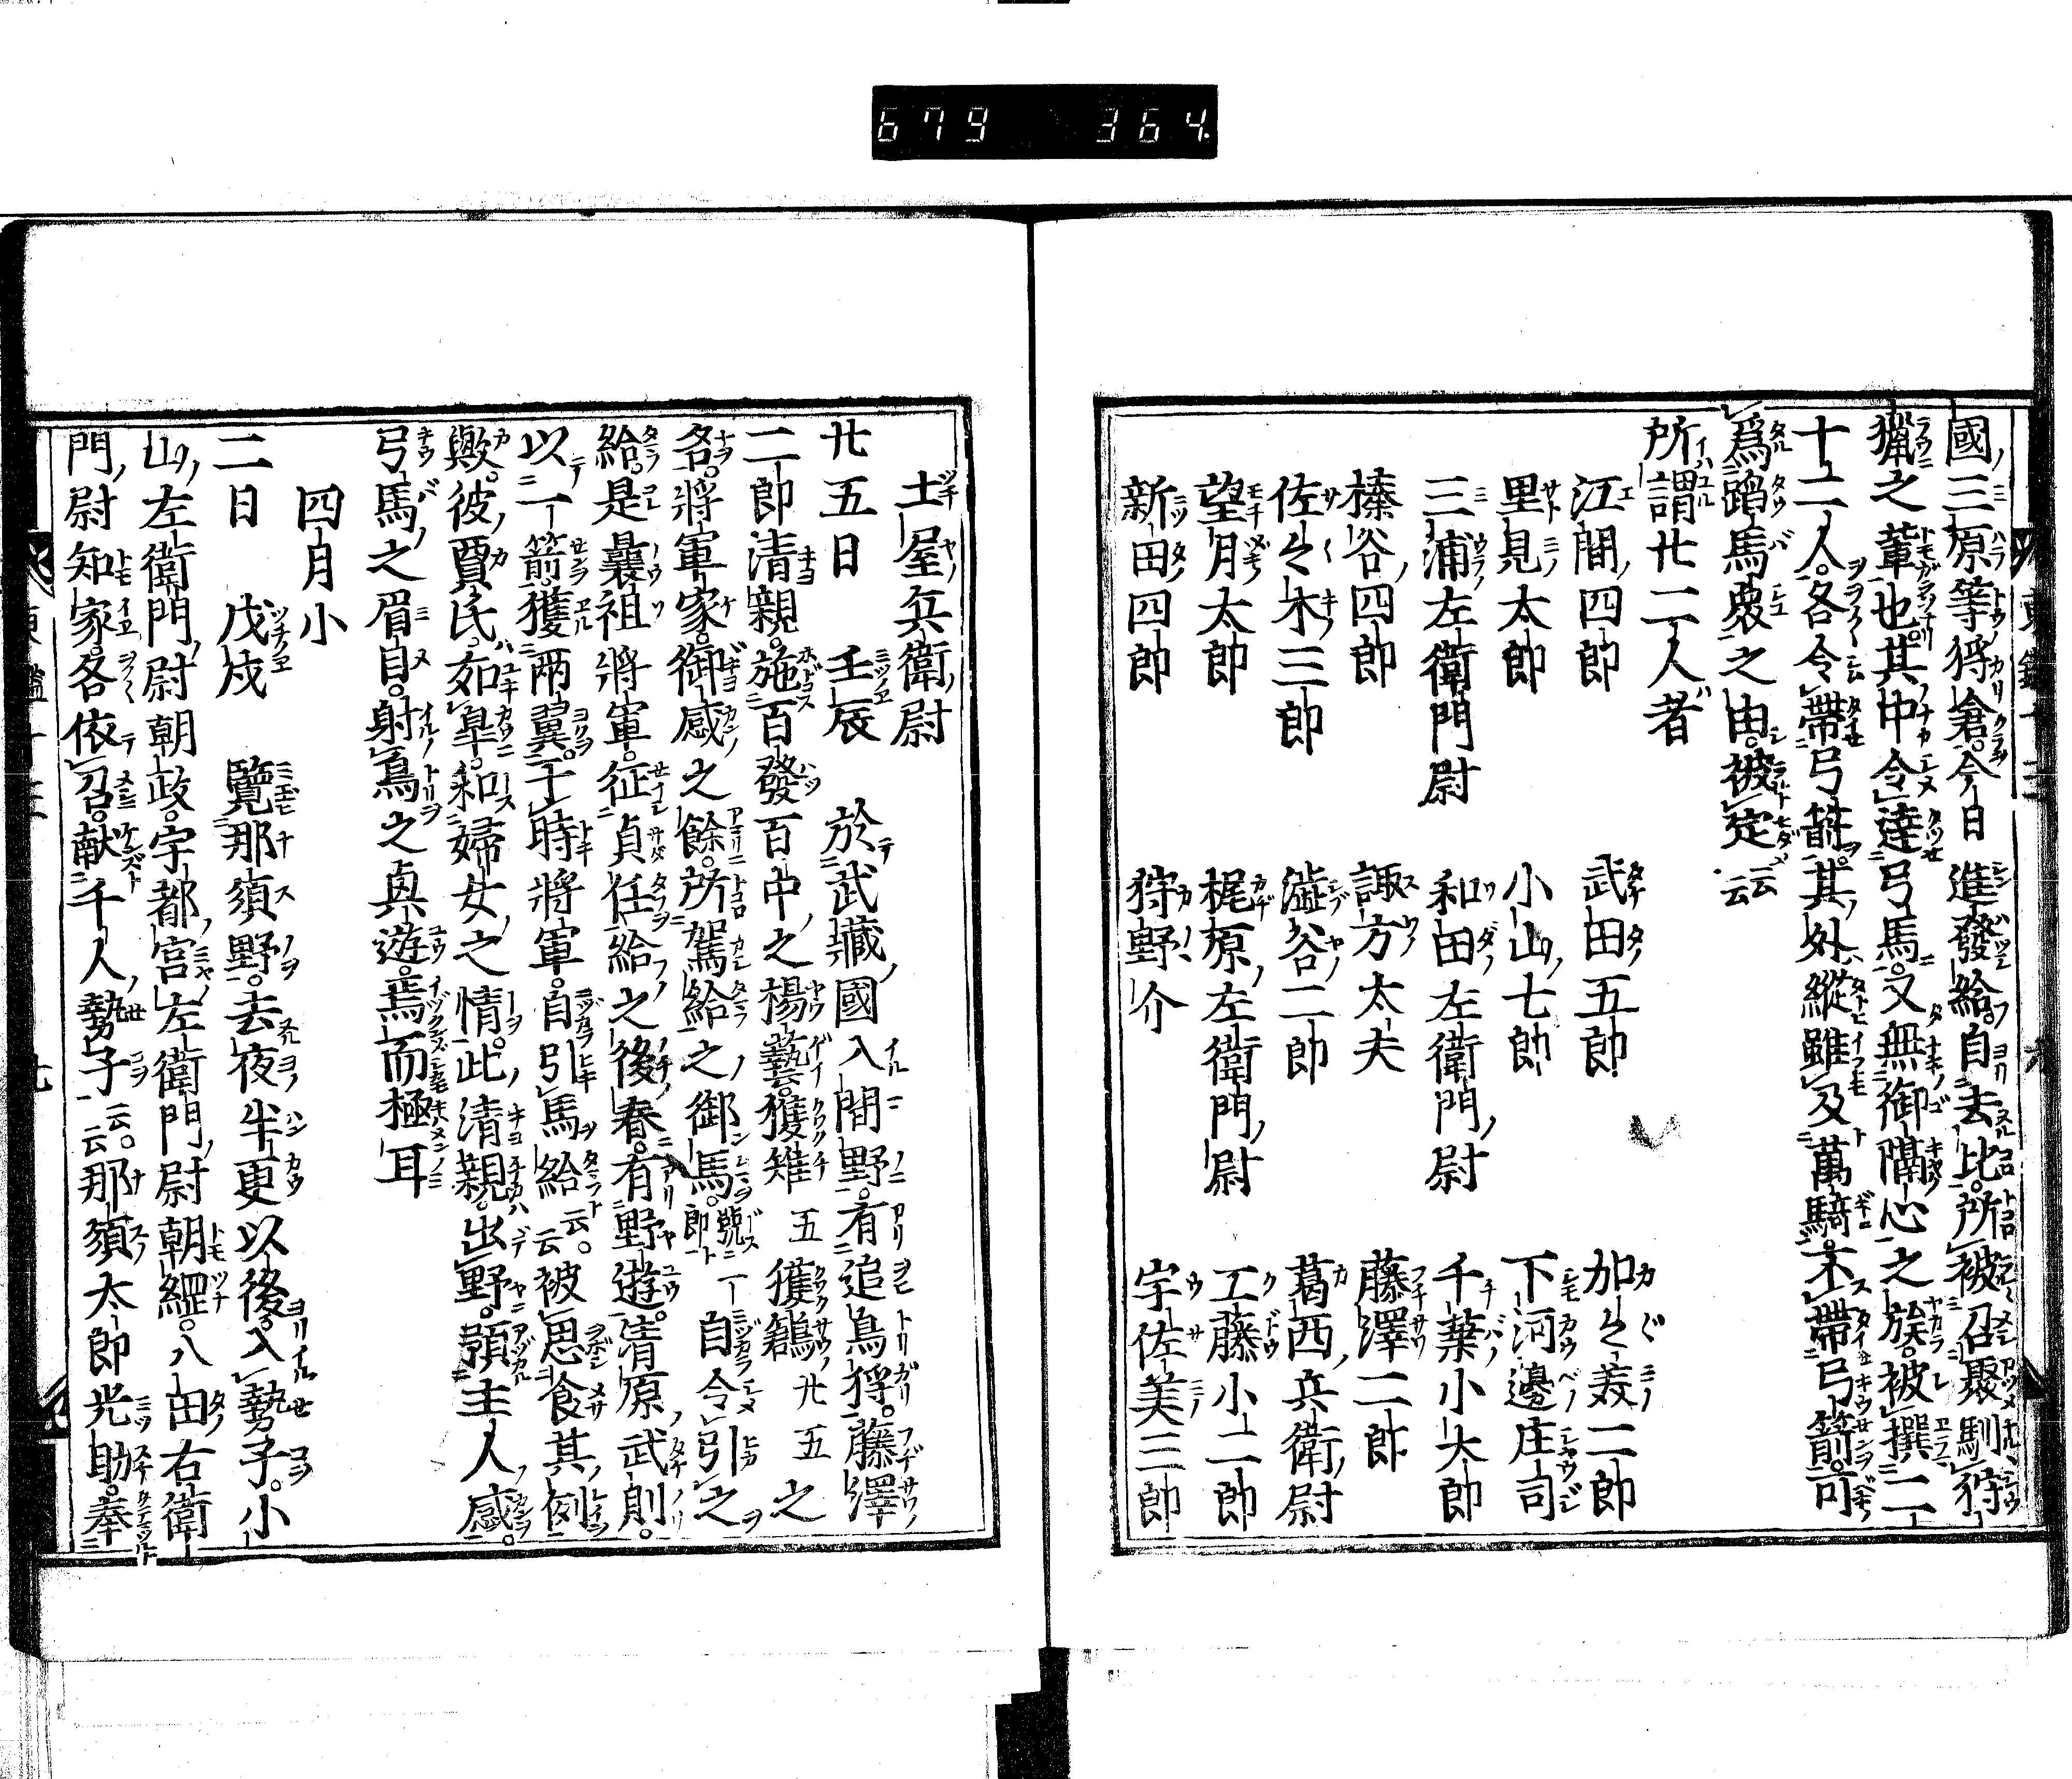 679 364.
國三原等狩倉今日進發給自去比所被召聚馴狩
獵之輩也其中令達弓馬又無御隔心之族被撰二
十二人各令帶弓箭其外縱雖及萬騎不帶弓箭可
爲蹈馬衆之由被定云云
所謂廿二人者
江間四郎 武田五郎 加々美二郎
里見太郎 小山七郎 下河邊庄司
三浦左衛門尉 和田左衛門尉 千葉小太郎
榛谷四郎 諏方太夫 藤澤二郎
佐々木三郎 澁谷二郎 葛西兵衛尉
望月太郎 梶原左衛門尉 工藤小二郎
新田四郎 狩野介 宇佐美三郎
土屋兵衛尉
廿五日 壬辰 於武藏國入間野有追鳥狩藤澤
二郎清親施百發百中之楊藝獲雉五獲鶬廿五之
各將軍家御感之餘所駕給之御馬號一郎自令引之
給是曩祖將軍征貞任給之後春有野遊清原武則
以一箭獲兩翼于時將軍自引馬給云云被思食其例
歟彼賈氏如皐和婦女之情此清親出野顈主人感
弓馬之眉目射鳥之眞遊焉而極耳
四月小
二日 戊戌 覽那須野去夜半更以後入勢子小
山左衛門尉朝政宇都宮左衛門尉朝綱八田右衛
門尉知家各依召献千人勢子云云那須太郎光助奉